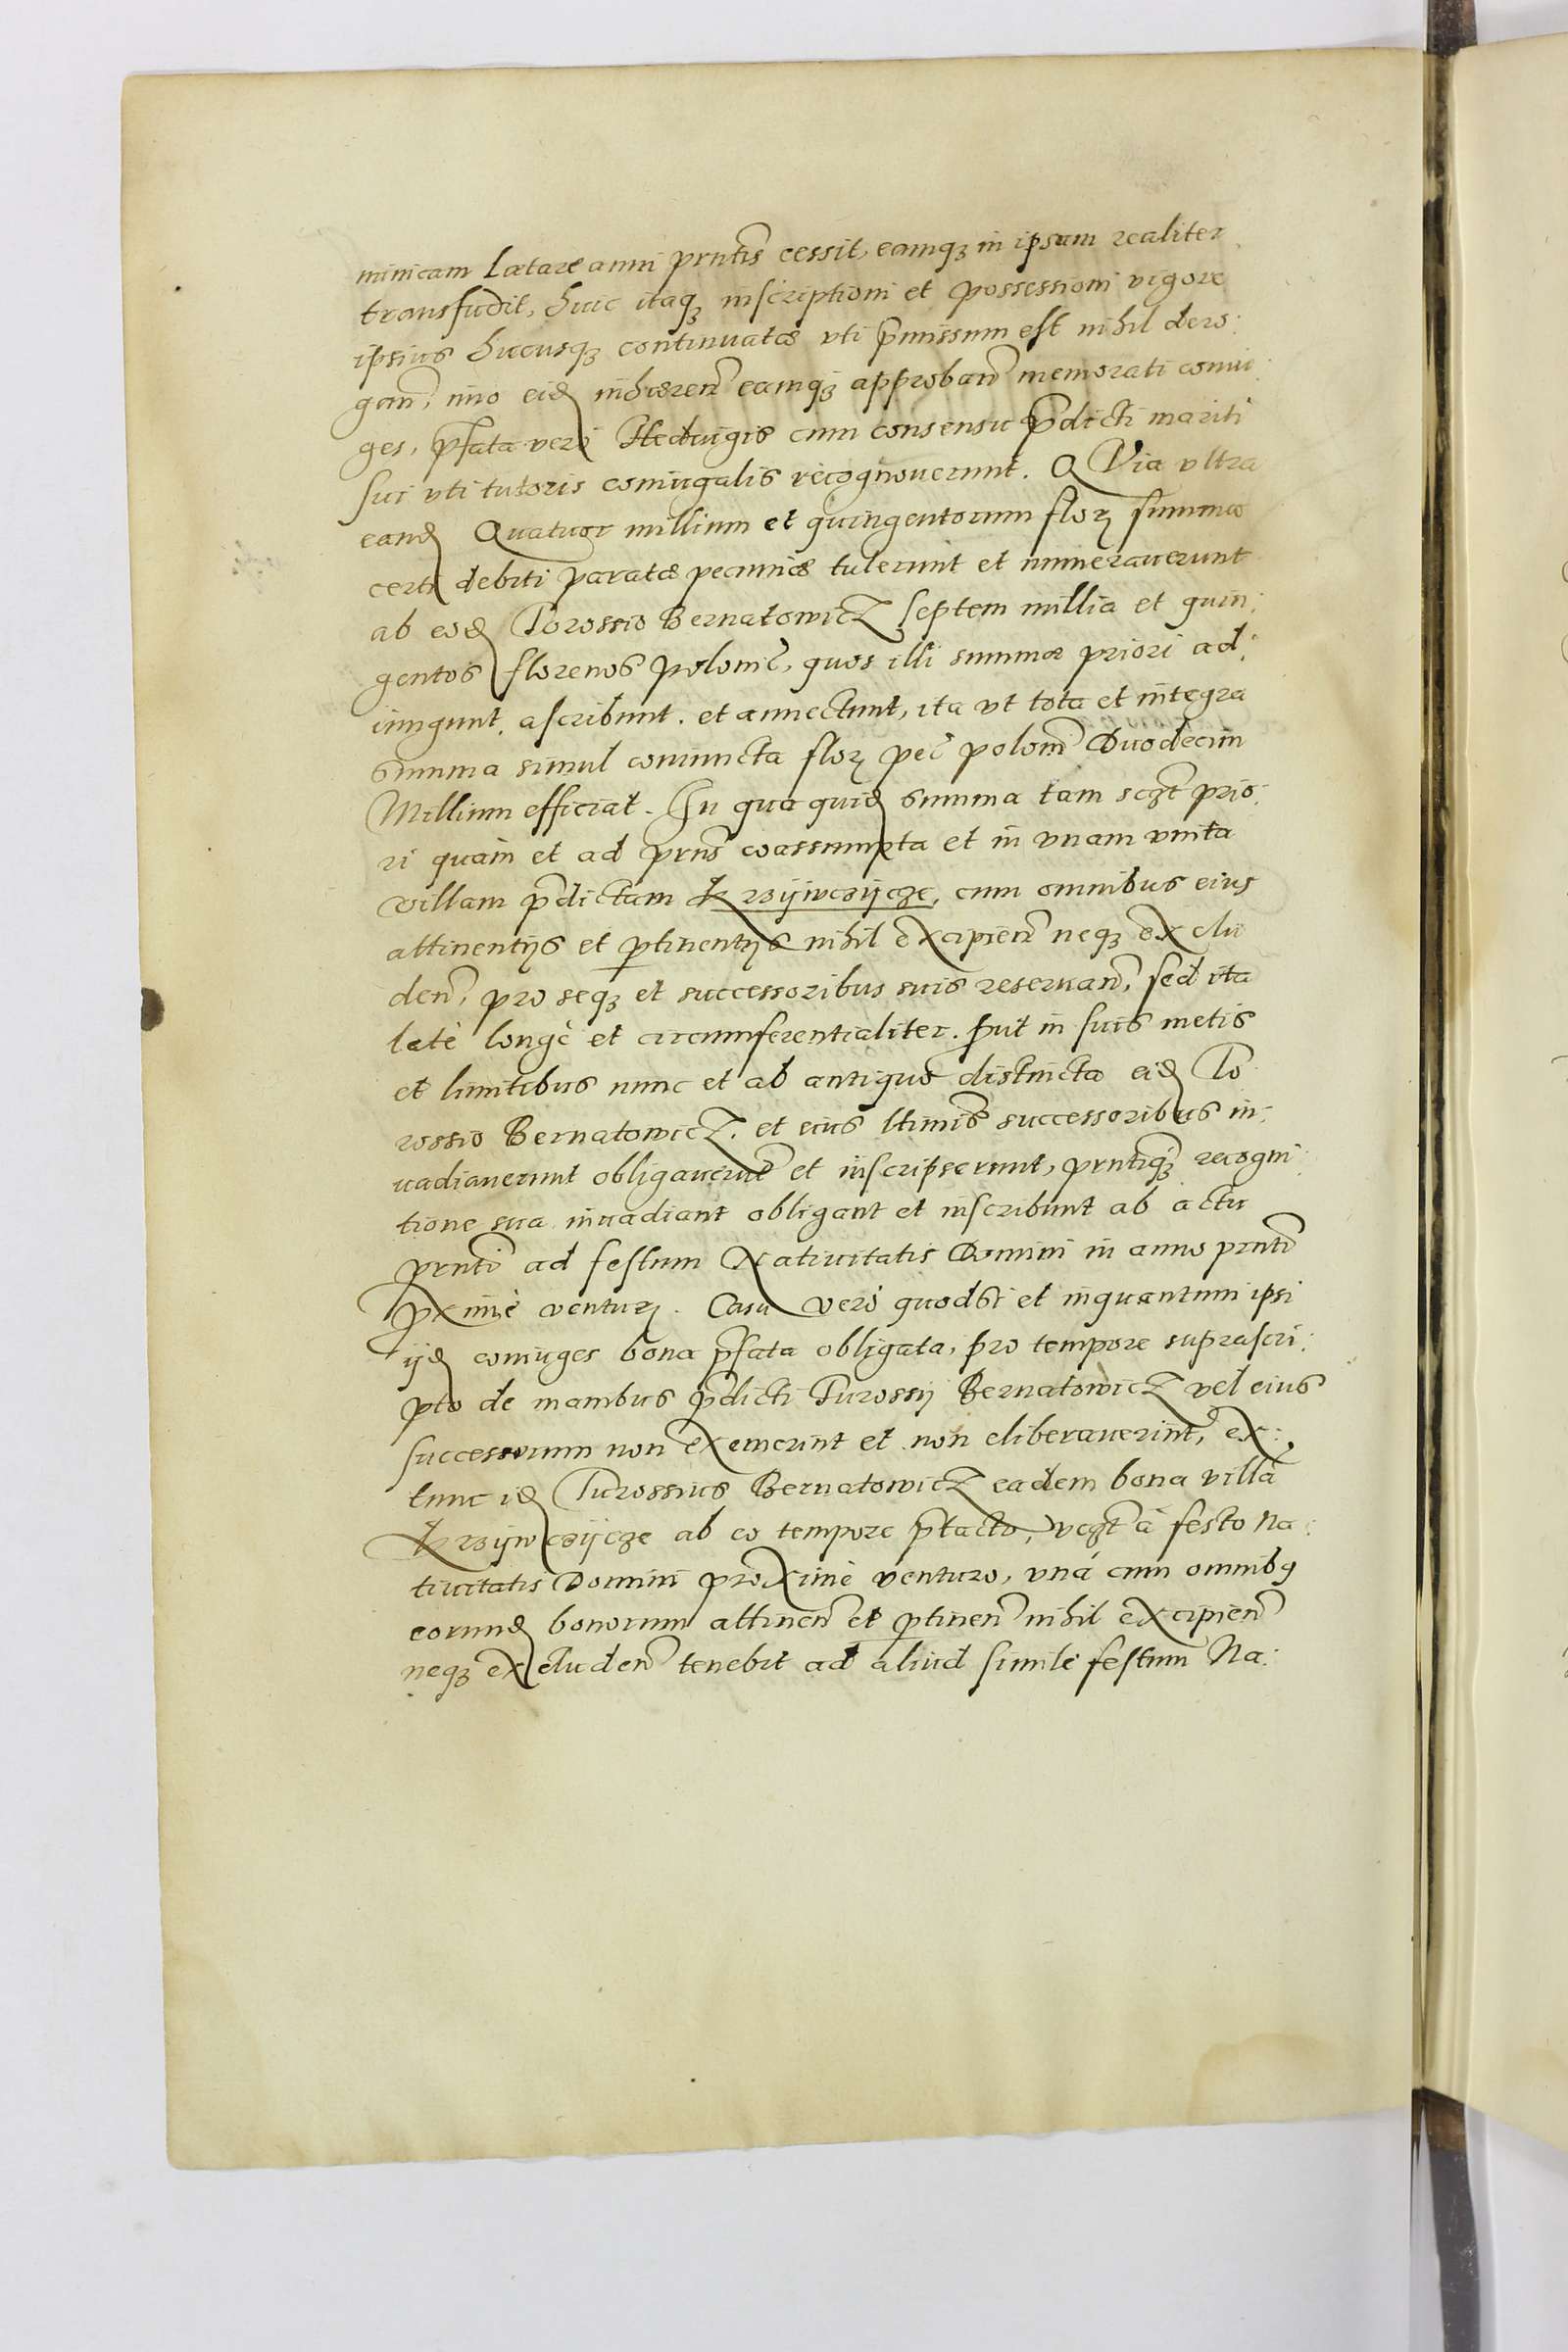 minicam Lætare anni prntis cessit, eamqȝ in ipsum realiter
transfudit, huic itaqȝ inscriptioni et possessioni vigore
ipsius hucusqȝ continuatæ vti p̄missum est nihil dero:
gan̄, imo eid inhæren̄ eamqȝ approban̄ memorati coniu:
ges, p̄fata verò Heduigis cum consensu p̄dicti mariti
sui vti tutoris coniugalis recognouerunt. QVia vltra
eand Quatuor millium et quingentorum florȝ summæ
certi debiti paratæ pecuniæ tulerunt et numerauerunt
ab eod Torossio Bernatowicz septem millia et quin:
gentos florenos polonic̄, quos illi summæ priori ad:
iungunt, ascribunt. et annectunt, ita vt tota et integra
summa simul coniuncta florȝ pec̄ polonī Duodecim
Millium efficiat. In qua quid summa tam sczt prio:
ri quàm et ad prns coassumpta et in vnam vnita
villam p̄dictam Krzijwczijcze, cum omnibus eius
attinentijs et ptinentijs nihil excipien̄ neqȝ exclu
den̄, pro seqȝ et successoribus suis reseruan̄, sed ita
latè longè et circumferentialiter. put in suis metis
et limitibus nunc et ab antiquo distincta eid To
rossio Bernatowicz. et eius ltimis successoribus in:
uadiauerunt obligauerunt et inscripserunt, prntiqȝ recogni:
tione sua inuadiant obligant et inscribunt ab actu
prnti ad festum Natiuitatis Domini in anno prnti
pximè venturȝ. Casu verò quodsi et inquantum ipsi
ijd coniuges bona p̄fata obligata, pro tempore suprascri:
pto de manibus p̄dicti Turossij Bernatowicz vel eius
successorum non exemerint et non eliberauerint, ex:
tunc id Turossius Bernatowicz eadem bona villā
Krzijwczijcze ab eo tempore p̄tacto, vczt à festo Na:
tiuitatis Domini proximè venturo, vná cum omnibꝯ
eorund bonorum attinen̄ et ptinen̄ nihil excipien̄
neqȝ excluden̄ tenebit ad aliud simile festum Na: